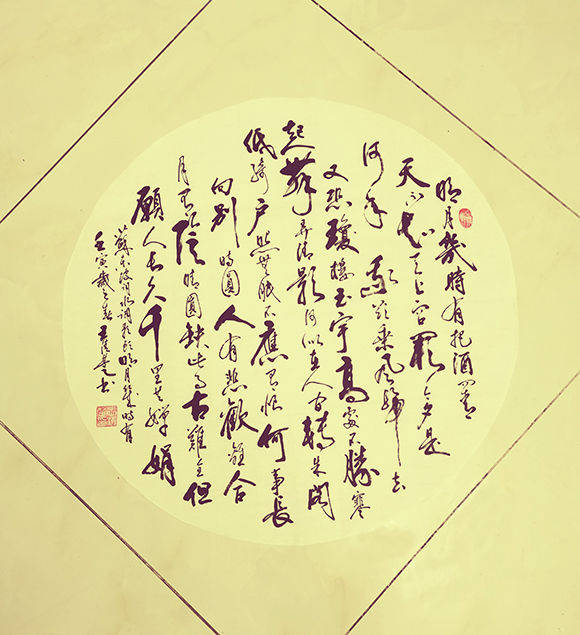 明月幾時有把酒问青
天不知天上宫闕今夕是
何年我欲乘風归去
又恐瓊樓玉宇高處不勝寒
起舞弄清影何似在人间轉朱阁
低绮户照無眠不應有恨何事長
向别時圓人有悲歡離合
月有陰晴圆缺此事古難全但
願人长久千里共嬋娟
蘇东坡词水调歌头明月幾时有
壬寅歲之春书